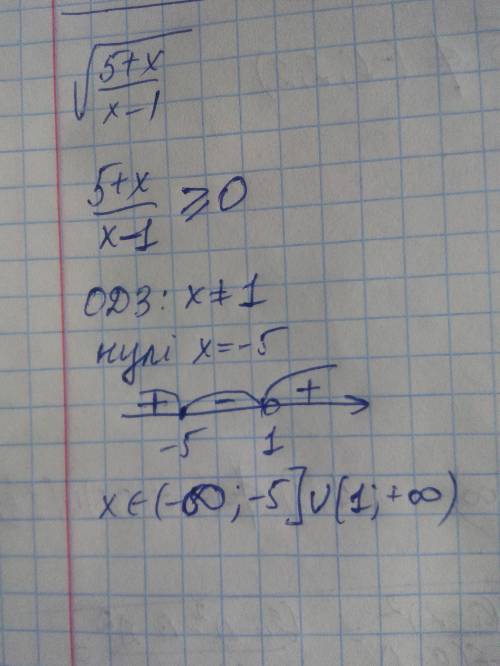 √((5+x)/(x-1))
(5+x)/(x-1) ⩾ 0
ОДЗ: x ≠ 1
нулі x = -5
+ - +
-5 1
x ∈ (-∞; -5] ∪ (1; +∞)